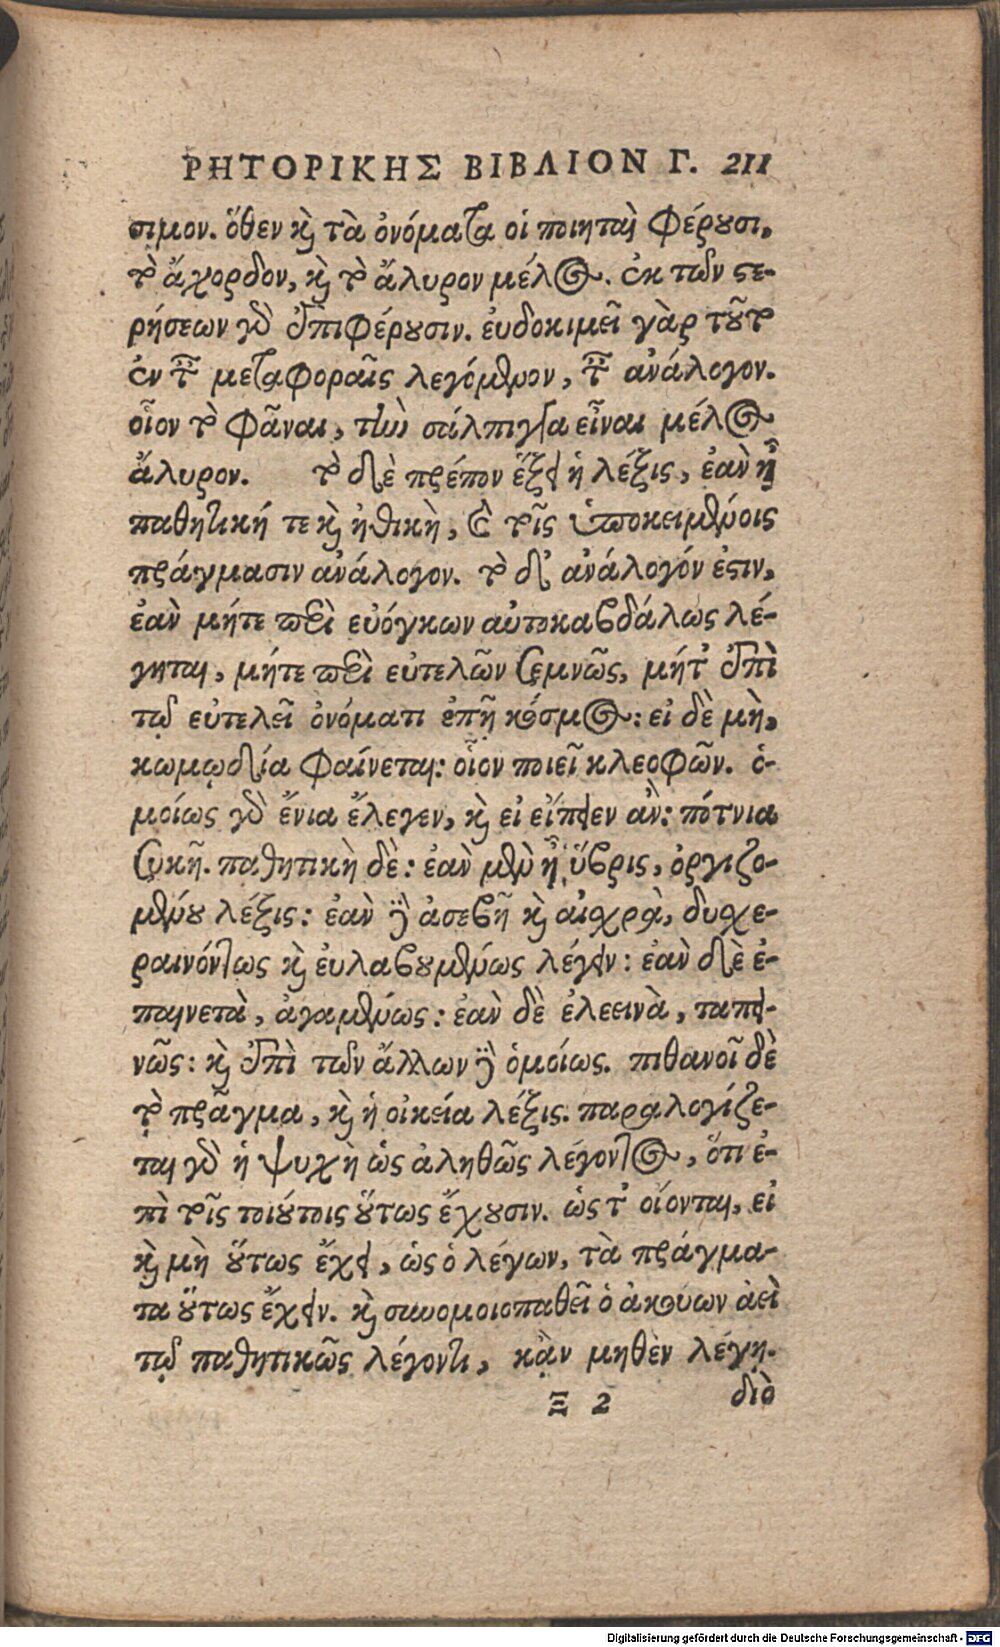 ΡΗΤΟΡΙΚΗΣ ΒΙΒΛΙΟΝ Γ. 211
σιμον. ὅθεν καὶ τὰ ὀνόματα οἱ ποιηταὶ φέρουσι,
τὸ ἄχορδον, καὶ τὸ ἄλυρον μέλος. ἐκ τῶν στε-
ρήσεων γὰρ ἐπιφέρουσιν. εὐδοκιμεῖ γὰρ τοῦτο
ἐν ταῖς μεταφοραῖς λεγόμενον, ταῖς ἀνάλογον.
οἷον τὸ φᾶναι, τὴν σάλπιγγα εἶναι μέλος
ἄλυρον. τὸ δὲ πρέπον ἕξει ἡ λέξις, ἐὰν ᾖ
παθητική τε καὶ ἠθικὴ, καὶ τοῖς ὑποκειμένοις
πράγμασιν ἀνάλογον. τὸ δ' ἀνάλογόν ἐστιν,
ἐὰν μήτε περὶ εὐόγκων αὐτοκαβδάλως λέ-
γηται, μήτε περὶ εὐτελῶν σεμνῶς, μήτ' ἐπὶ
τῷ εὐτελεῖ ὀνόματι ἐπῇ κόσμος: εἰ δὲ μὴ,
κωμῳδία φαίνεται: οἷον ποιεῖ κλεοφῶν. ὁ-
μοίως γὰρ ἔνια ἔλεγεν, καὶ εἰ εἴπειεν ἂν: πότνια
συκῆ. παθητικὴ δὲ: ἐὰν μὲν ᾖ ὕβρις, ὀργιζο-
μένου λέξις: ἐὰν δὲ ἀσεβῆ καὶ αἰσχρὰ, δυσχε-
ραινόντως καὶ εὐλαβουμένως λέγειν: ἐὰν δὲ ἐ-
παινετὰ, ἀγαμένως: ἐὰν δὲ ἐλεεινὰ, ταπει-
νῶς: καὶ ἐπὶ τῶν ἄλλων δὲ ὁμοίως. πιθανοῖ δὲ
τὸ πρᾶγμα, καὶ ἡ οἰκεία λέξις. παραλογίζε-
ται γὰρ ἡ ψυχὴ ὡς ἀληθῶς λέγοντος, ὅτι ἐ-
πὶ τοῖς τοιούτοις οὕτως ἔχουσιν. ὡς τ' οἴονται, εἰ
καὶ μὴ οὕτως ἔχει, ὡς ὁ λέγων, τὰ πράγμα-
τα οὕτως ἔχειν. καὶ συνομοιοπαθεῖ ὁ ἀκούων ἀεὶ
τῷ παθητικῶς λέγοντι, κᾂν μηθὲν λέγῃ.
Ξ 2 διὸ
Digitalisierung gefördert durch die Deutsche Forschungsgemeinschaft - DFG